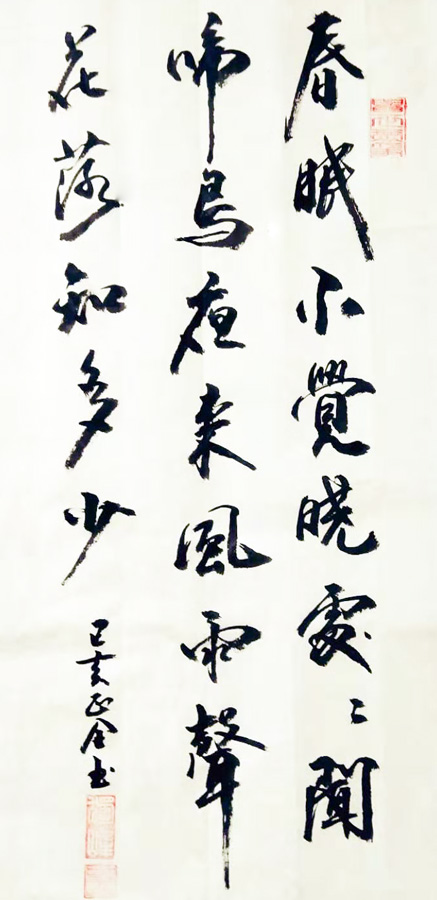 春眠不覺曉處〻聞
啼鸟夜来風雨聲
花落知多少
己亥正全书